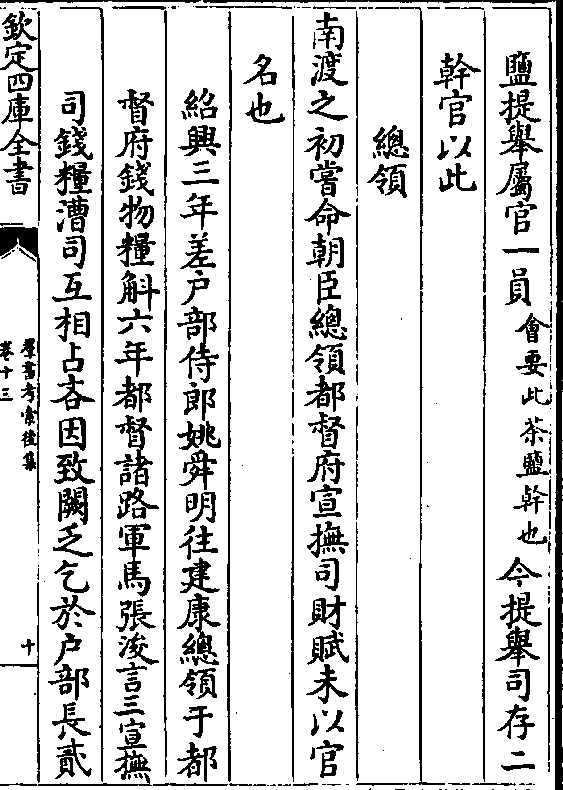 鹽提舉屬官一員會要此茶鹽幹也今提舉司存二
幹官以此
總領
南渡之初嘗命朝臣總領都督府宣撫司財賦未以官
名也
紹興三年差户部侍郎姚舜明往建康總領于都
督府錢物糧斛六年都督諸路軍馬張浚言三宣撫
司錢糧漕司互相占吝因致闕乏乞於户部長貳
欽定四庫全書
羣書考索後集
卷十三
十